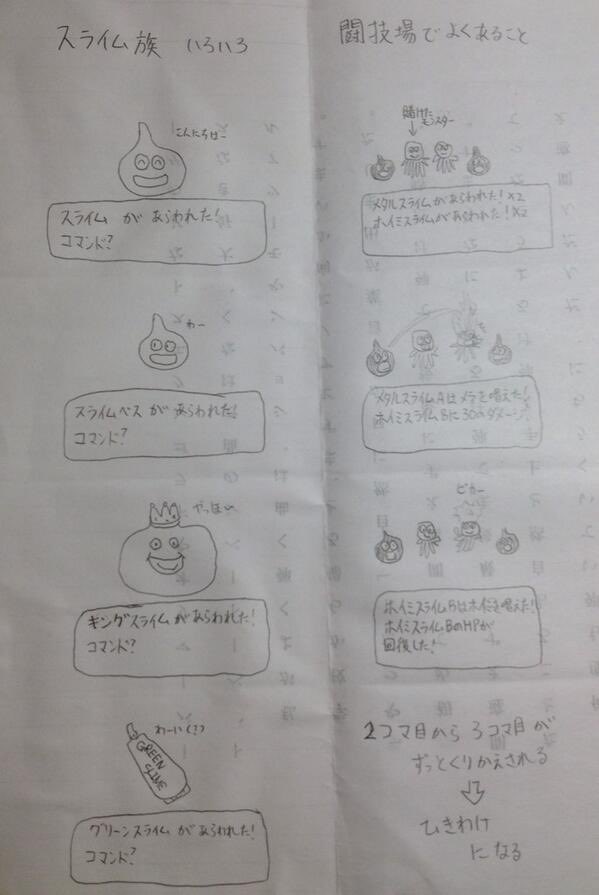 スライム族 いろいろ
こんにちは〜
スライム があらわれた!
コマンド?
わー
スライムベス があらわれた!
コマンド?
やっほい
キングスライムがあらわれた!
コマンド?
GREEN
SLIME
グリーンスライム があらわれた!
コマンド?
闘技場でよくあること
賭けた
モンスター
メタルスライムがあらわれた!×2
ホイミスライムがあらわれた!×2
メタルスライムAはメラを唱えた!
ホイミスライムBに30のダメージ!
ピカー
ホイミスライムBはホイミを唱えた!
ホイミスライムBのHPが
回復した!
2コマ目から3コマ目が
ずっとくりかえされる
ひきわけ
になる